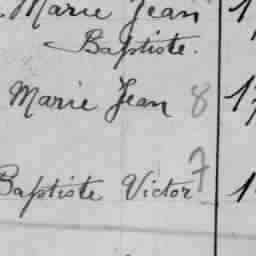 Marie Jean 1
Baptiste.
Marie Jean 8 17
Baptiste Victor 7 1